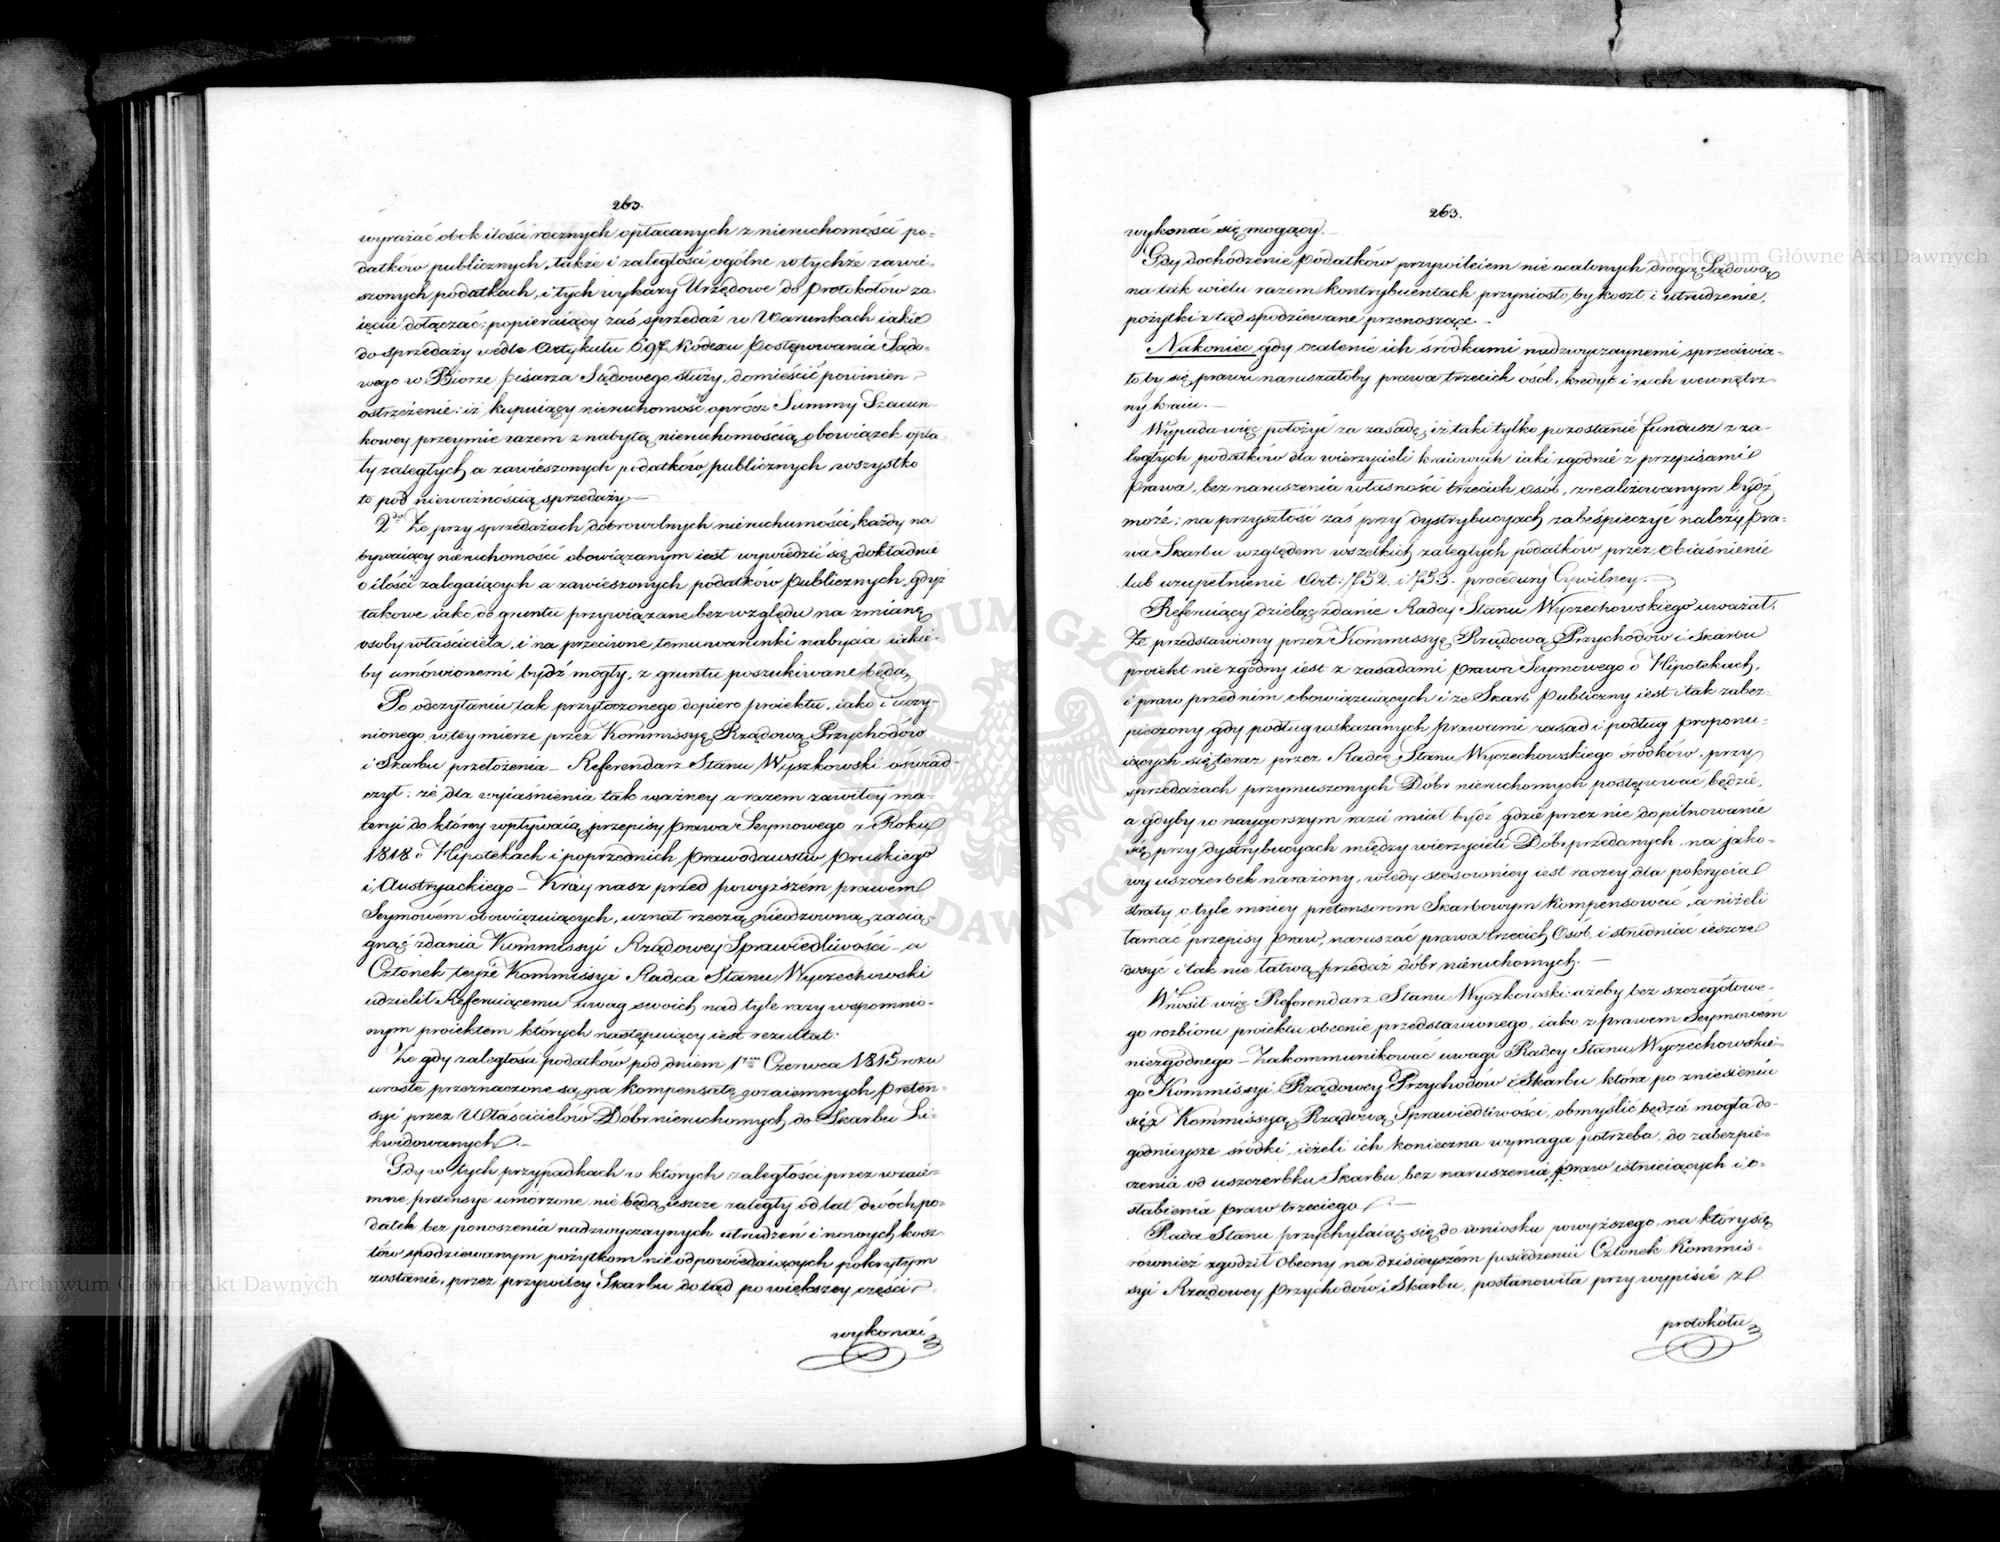 263.
wyrażać obok ilości rocznych opłacanych z nieruchomości po-
datków publicznych, także i zaległości ogólne w tychże zawie-
szonych podatkach, i tych wykazy Urzędowe do protokołów za-
ięcia dołączać; popieraiący zaś sprzedaż w Warunkach iakie
do sprzedaży wedle Artykułu 697 Kodexu Postępowania Sądo-
wego w Biorze pisarza Sądowego służy, domieścić powinien
ostrzeżenie: iż kupuiący nieruchomość oprócz Summy Szacun-
kowey przeymie razem z nabytą nieruchomością obowiązek opła-
ty zaległych a zawieszonych podatków publicznych, wszystko
to pod nieważnością sprzedaży. —
2do Że przy sprzedażach dobrowolnych nieruchomości, każdy na-
bywaiący nieruchomości obowiązanym iest wywiedzić się dokładnie
o ilości zalegaiących a zawieszonych podatków publicznych, gdyż
takowe iako do gruntu przywiązane bez względu na zmianę
osoby właściciela, i na przeciwne temu warunki nabycia iakie-
by umówionemi bydź mogły, z gruntu poszukiwane będą
Po odczytaniu tak przytoczonego dopiero proiektu, iako i uczy-
nionego w tey mierze przez Kommissyę Rządową Przychodów
i Skarbu przełożenia — Referendarz Stanu Wyszkowski oświad-
czył: że dla wyiaśnienia tak ważney a razem zawiłey ma-
teryi do którey wpływaią przepisy prawa Seymowego z Roku
1818 o Hipotekach i poprzednich prawodawstw pruskiego
i Austryackiego — Kray nasz przed powyższém prawem
Seymowém obowiązuiących, uznał rzeczą niedzowną zasią-
gnąć zdania Kommissyi Rządowey Sprawiedliwości — a
Członek teyże Kommissyi Radca Stanu Wyczechowski
udzielił Referuiącemu uwag swoich nad tyle razy wspomnio-
nym proiektem których następuiący iest rezultat:
Że gdy zaległości podatków pod dniem 1ym Czerwca 1815 roku
urosłe przeznaczone są na kompensatę wzaiemnych preten-
syi przez Właścicielów Dóbr nieruchomych do Skarbu Li-
kwidowanych. —
Gdy w tych przypadkach w których zaległości przez wzaie-
mne pretensye umorzone nie będą ieszcze zaległy od lat dwóch po-
datek bez ponoszenia nadzwyczaynych utrudzeń i nowych kosz-
tów spodziewanym pożytkom nie odpowiedaiących pokrytym
zostanie, przez przywiley Skarbu dotąd po większey części
wykonać
263.
wykonać się mogący. —
Gdy dochodzenie podatków przywileiem nie ocalonych drogą Sądową
na tak wielu razem kontrybuentach przyniosłoby koszt i utrudzenie,
pożytki ztąd spodziewane przenoszące —
Nakoniec gdy ocalenie ich środkami nadzwyczaynemi sprzeciwia-
łoby się prawu naruszałoby prawa trzecich osób, kredyt i ruch wewnętrz-
ny kraiu. —
Wypada więc położyć za zasadę, iż taki tylko pozostanie fundusz z za-
ległych podatków dla wierzycieli kraiowych iaki zgodnie z przepisami
prawa, bez naruszenia własności trzecich osób, zrealizowanym bydź
może; na przyszłość zaś przy dystrybucyach zabespieczyć należy pra-
wa Skarbu względem wszelkich zaległych podatków przez obiaśnienie
lub uzupełnienie Art: 752. i 753. procedury Cywilney. —
Referuiący dzieląc zdanie Radcy Stanu Wyczechowskiego uważał,
Że przedstawiony przez Kommissyę Rządową Przychodów i Skarbu
proiekt nie zgodny iest z zasadami prawa Seymowego o Hipotekach,
i praw przed nim obowiązuiących i że Skarb Publiczny iest i tak zabez-
pieczony gdy podług wskazanych prawami zasad i podług proponu-
iących się teraz przez Radcę Stanu Wyczechowskiego środków, przy
sprzedażach przymuszonych Dóbr nieruchomych postępować będzie,
a gdyby w naygorszym razie miał bydź gdzie przez nie dopilnowanie
się przy dystrybucyach między wierzycieli Dóbr przedanych, na jako-
wy uszczerbek narażony, wtedy stosowniey iest raczey dla pokrycia
straty, o tyle mniey pretensorom Skarbowym kompensować, a niżeli
łamać przepisy praw, naruszać prawa trzecich Osób, i utrudniać ieszcze
dosyć i tak nie łatwą przedaż dóbr nieruchomych. —
Wnosił więc Referendarz Stanu Wyszkowski: ażeby bez szczegółowe-
go rozbioru proiektu obecnie przedstawionego, iako z prawem Seymowém
niezgodnego — Zakommunikować uwagi Radcy Stanu Wyczechowskie-
go Kommissyi Rządowey Przychodów i Skarbu która po zniesieniu
się z Kommissyą Rządową Sprawiedliwości, obmyślić będzie mogła do-
godnieysze środki, ieżeli ich konieczna wymaga potrzeba, do zabezpie-
czenia od uszczerbku Skarbu, bez naruszenia praw istnieiących i o-
słabienia praw trzeciego. —
Rada Stanu przychylaiąc się do wniosku powyższego, na który się
również zgodził obecny na dzisieyszém posiedzeniu Członek Kommis-
syi Rządowey Przychodów i Skarbu, postanowiła przy wypisie z
protokółu
Archiwum Główne Akt Dawnych
Archiwum Główne Akt Dawnych
ARCHIWUM GŁÓWNE AKT DAWNYCH